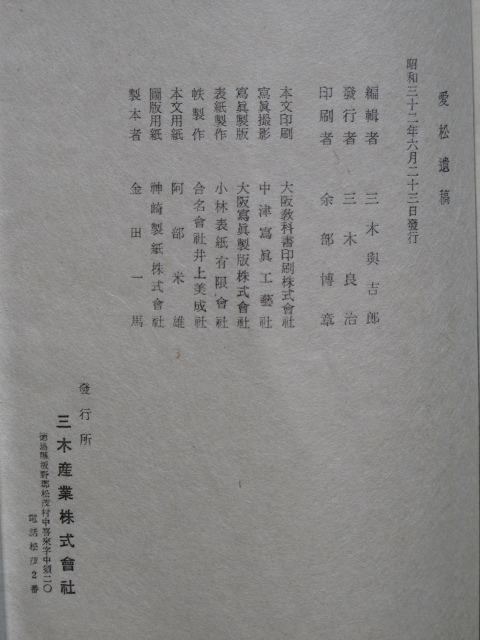 愛松遺稿
昭和三十二年六月二十三日發行
編輯者 三木與吉郎
發行者 三木良治
印刷者 余部博章
本文印刷 大阪敎科書印刷株式會社
寫眞撮影 中津寫眞工藝社
寫眞製版 大阪寫眞製版株式會社
表紙製作 小林表紙有限會社
帙製作 合名會社井上美成社
本文用紙 阿部米雄
圖版用紙 神崎製紙株式會社
製本者 金田一馬
發行所
三木産業株式會社
德島縣板野郡松茂村中喜來字中須二〇
電話松茂2番